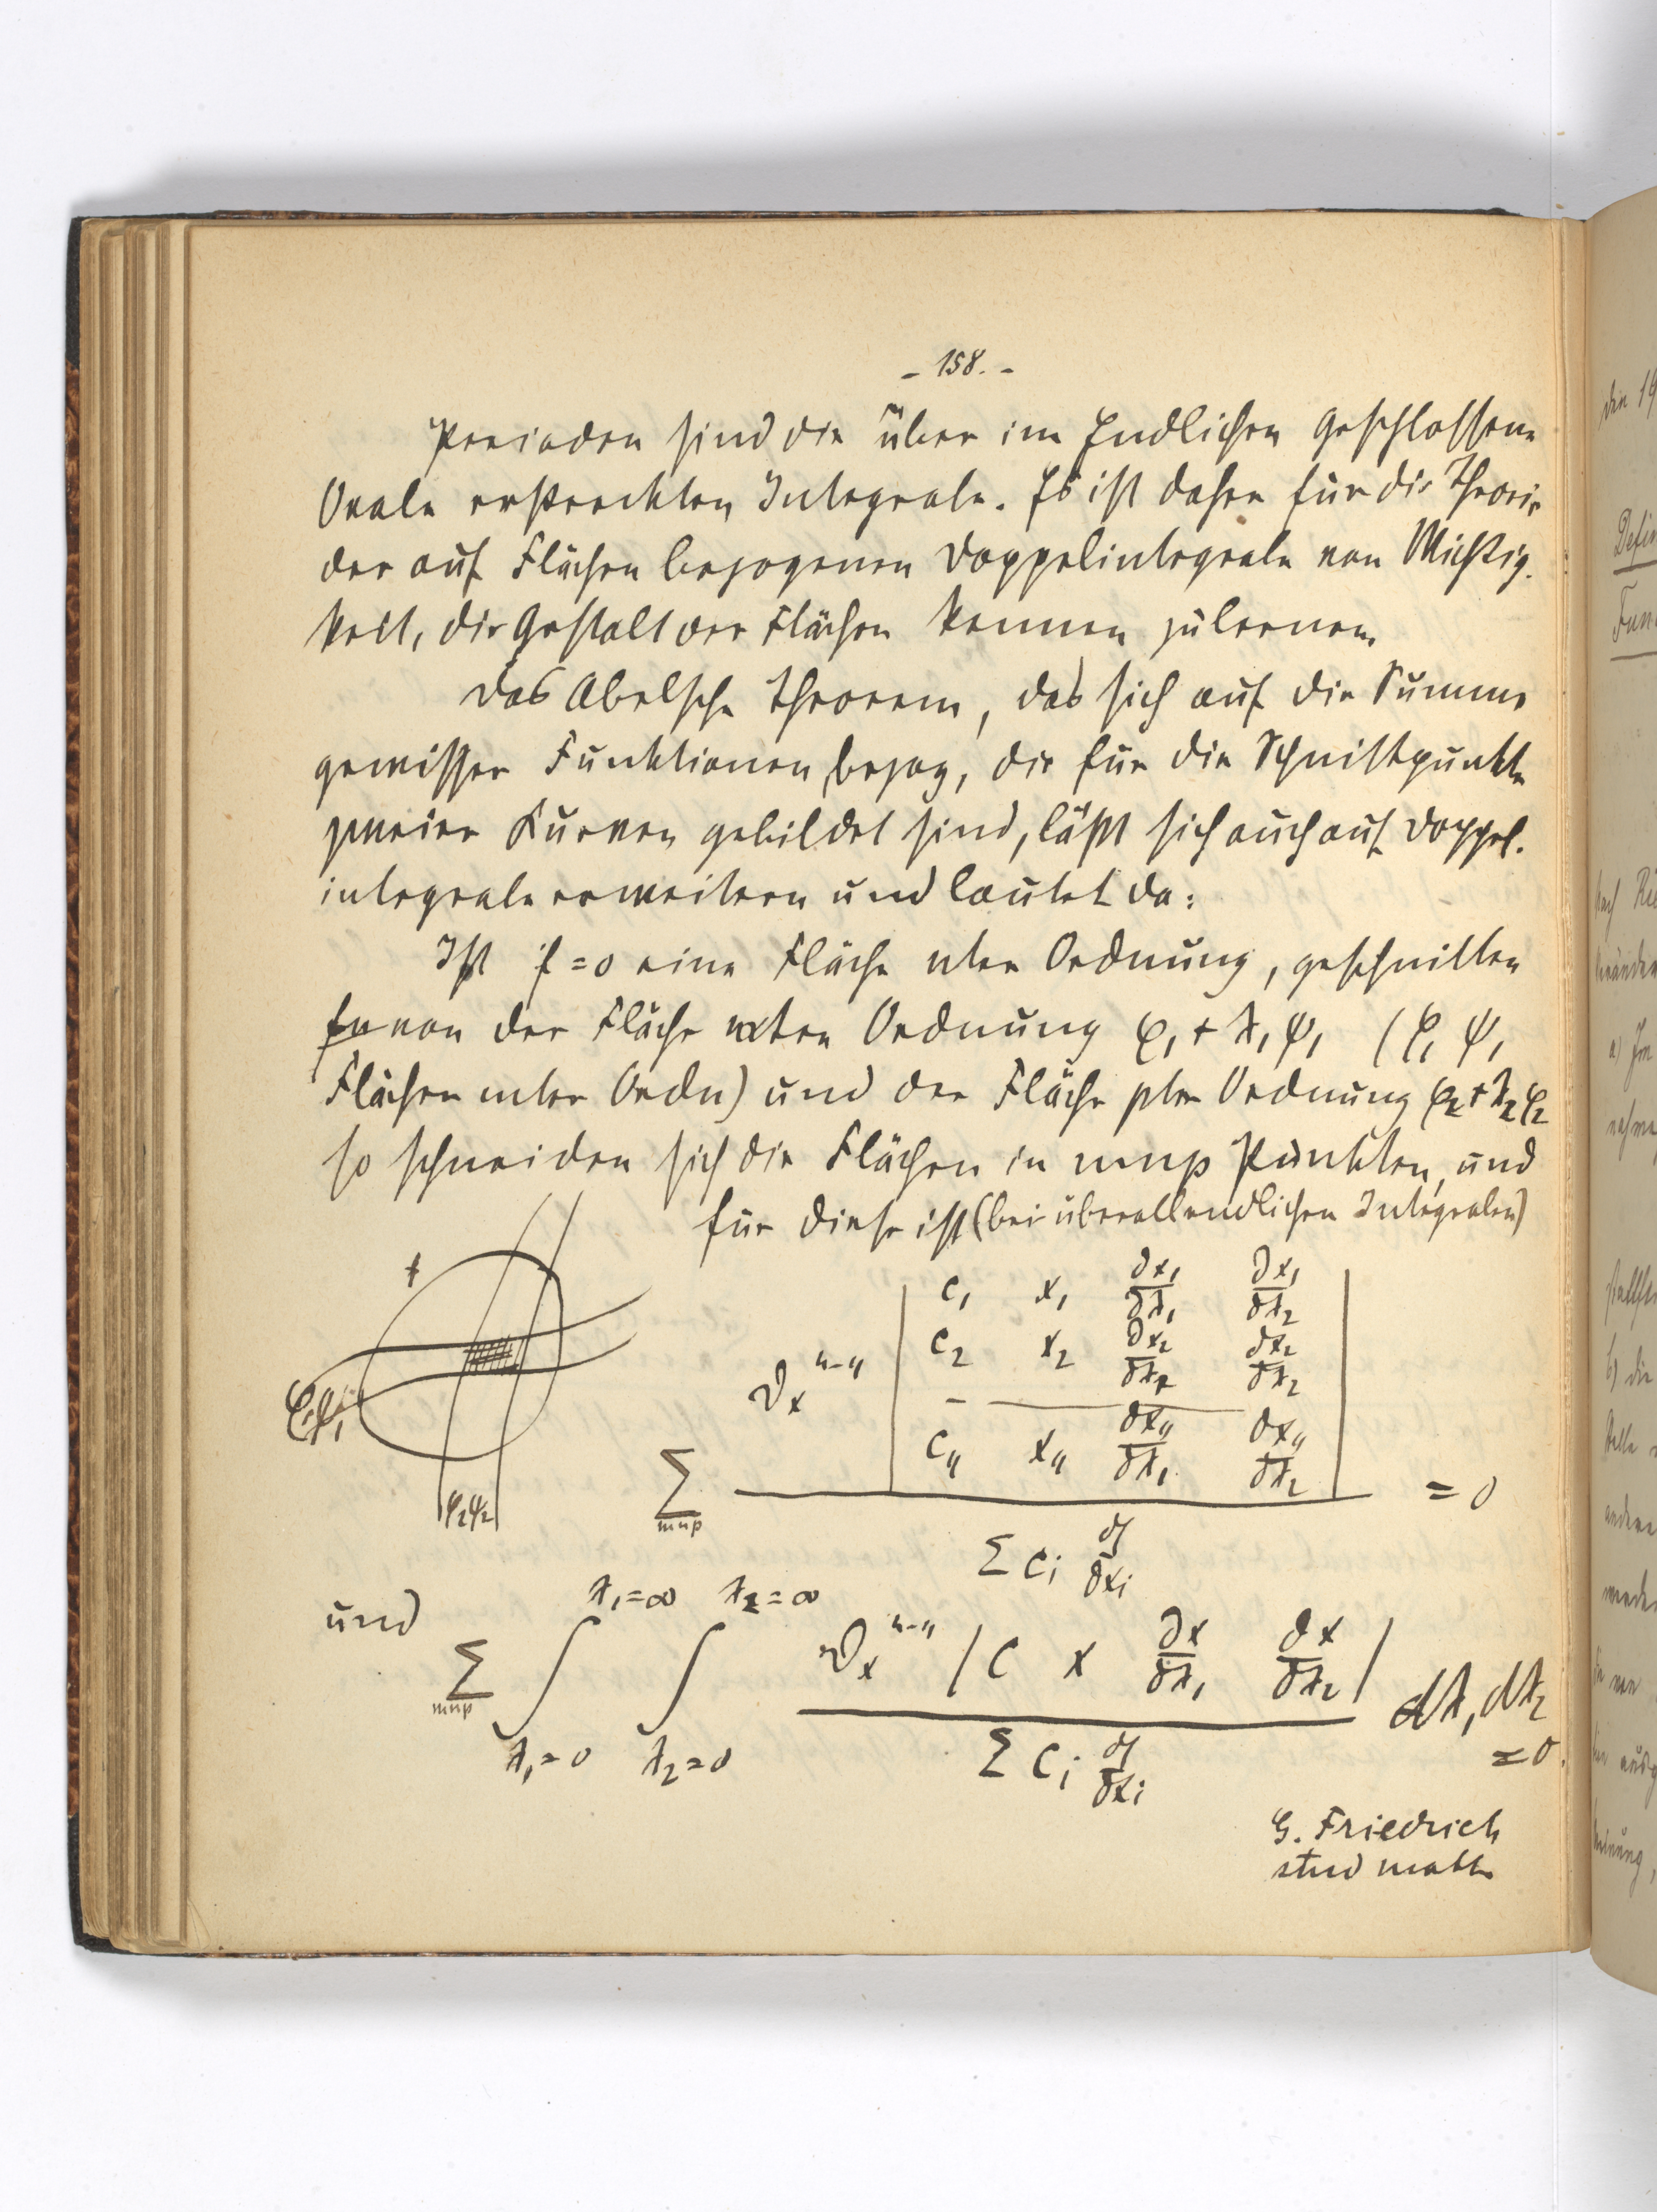 - 158. -
Perioden sind die über im Endlichen geschlossene
Ovale erstreckten Integrale. Es ist daher für die Theorie
der auf Flächen bezogenen Doppelintegrale von Wichtig-
keit, die Gestalt der Flächen kennen zu lernen.
Das Abelsche Theorem, das sich auf die Summe
gewisser Funktionen bezog, die für die Schnittpunkte
zweier Kurven gebildet sind, läßt sich auch auf Doppel-
integrale erweitern und lautet da:
Ist f=0 eine Fläche nter Ordnung, geschnitten
von der Fläche mter Ordnung φ₁+λ₁ψ₁ (φ₁ ψ₁
Flächen mter Ordn) und der Fläche pter Ordnung φ₂+λ₂ψ₂
so schneiden sich die Flächen in mnp Punkten, und
für diese ist (bei überallendlichen Integralen)
f
φ₁ψ₁
φ₂ψ₂
c₁ x₁ ∂x₁/∂λ₁ ∂x₁/∂λ₂
c₂ x₂ ∂x₂/∂λ₁ ∂x₂/∂λ₂
ϑₓⁿ⁻⁴
c₄ x₄ ∂x₄/∂λ₁ ∂x₄/∂λ₂
∑ mnp = 0
∑ cᵢ ∂f/∂xᵢ
und
λ₁=∞ λ₂=∞
∑ mnp ∫ ∫ ϑₓⁿ⁻⁴ | c x ∂x/∂λ₁ ∂x/∂λ₂ | dλ₁ dλ₂
λ₁=0 λ₂=0 ∑ cᵢ ∂f/∂xᵢ = 0.
G. Friedrich
stud math